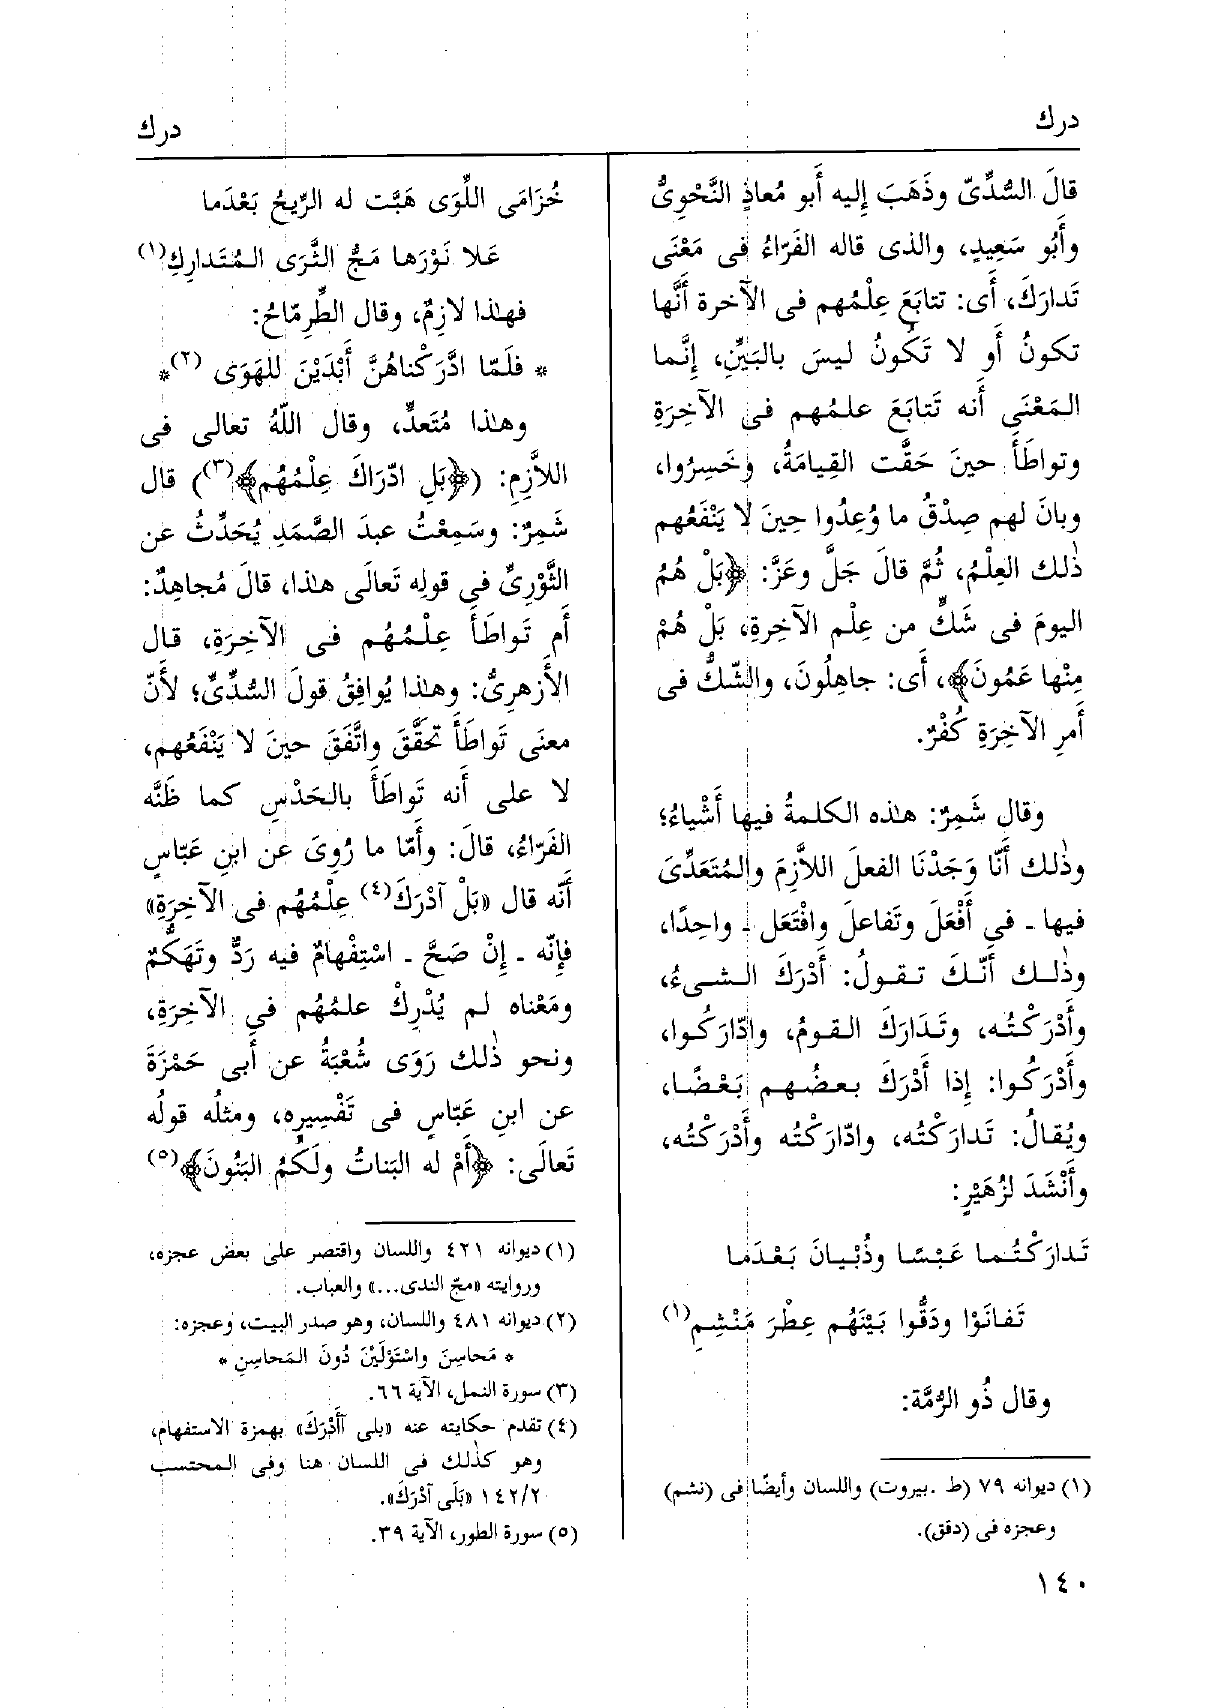 درك
درك
قالَ السُّدِّىّ وذَهَبَ إليه أبو مُعاذٍ النَّحْوِىُّ
وأَبُو سَعِيدٍ، والذى قاله الفَرّاءُ فى مَعْنَى
تَدارَكَ، أَى: تتابَعَ عِلْمُهم فى الآخرة أَنَّها
تكونُ أَو لا تَكُونُ ليسَ بالبَيِّنِ، إِنَّما
المَعْنَى أَنه تَتابَعَ علمُهم فى الآخِرَةِ
وتواطَأَ حينَ حَقَّت القِيامَةُ، وخَسِرُوا،
وبانَ لهم صِدْقُ ما وُعِدُوا حِينَ لا يَنْفَعُهم
ذٰلك العِلْمُ، ثُمَّ قالَ جَلَّ وعَزَّ: ﴿بَلْ هُمُ
اليومَ فى شَكٍّ من عِلْم الآخِرةِ، بَلْ هُمْ
مِنْها عَمُونَ﴾، أَى: جاهِلُونَ، والشّكُّ فى
أَمرِ الآخِرَةِ كُفْرٌ.
وقال شَمِرٌ: هـٰذه الكلمةُ فيها أَشْياءُ؛
وذٰلك أَنّا وَجَدْنَا الفعلَ اللاَّزِمَ والمُتَعَدِّىَ
فيها - فى أَفْعَلَ وتَفاعلَ وافْتَعَل - واحِدًا،
وذٰلك أَنّكَ تقولُ: أَدْرَكَ الشىءُ،
وأَدْرَكْتُه، وتَدَارَكَ القومُ، وادّارَكُوا،
وأَدْرَكُوا: إِذا أَدْرَكَ بعضُهم بَعْضًا،
ويُقالُ: تَدارَكْتُه، وادّارَكْتُه وأَدْرَكْتُه،
وأَنْشَدَ لزُهَيْرٍ:
تَدارَكْتُما عَبْسًا وذُبْيانَ بَعْدَما
تَفانَوْا ودَقُّوا بَيْنَهُم عِطْرَ مَنْشِمِ(١)
وقال ذُو الرُّمَّة:
(١) ديوانه ٧٩ (ط .بيروت) واللسان وأيضًا فى (نشم)
وعجزه فى (دقق).
خُزَامَى اللِّوَى هَبَّت له الرِّيحُ بَعْدَما
عَلا نَوْرَها مَجُّ الثَّرَى المُتَدارِكِ(١)
فهـٰذا لازِمٌ، وقال الطِّرِمّاحُ:
* فلَمّا ادَّرَكْناهُنَّ أَبْدَيْنَ للهَوَى (٢)*
وهـٰذا مُتَعدٍّ، وقال اللّهُ تعالى فى
اللاَّزِمِ: (﴿بَلِ ادّارَكَ عِلْمُهُم﴾(٣)) قال
شَمِرٌ: وسَمِعْتُ عبدَ الصَّمَدِ يُحَدِّثُ عن
الثَّوْرِىِّ فى قولِه تَعالَى هـٰذا، قالَ مُجاهِدٌ:
أَم تَواطَأَ عِلْمُهُم فى الآخِرَةِ، قال
الأَزهرِىُّ: وهـٰذا يُوافِقُ قولَ السُّدِّىِّ؛ لأَنّ
معنَى تَواطَأَ تحَقَّقَ واتَّفَقَ حينَ لا يَنْفَعُهم،
لا على أَنه تَواطَأَ بالحَدْسِ كما ظَنَّه
الفَرّاءُ، قالَ: وأَمّا ما رُوِىَ عن ابنِ عَبّاسٍ
أَنّه قال «بَلْ آدْرَكَ(٤) عِلْمُهُم فى الآخِرَةِ»
فإِنّه - إِنْ صَحَّ - اسْتِفْهامٌ فيه رَدٌّ وتَهَكُّمٌ
ومَعْناه لم يُدْرِكْ علمُهُم فى الآخِرَةِ،
ونحو ذٰلك رَوَى شُعْبَةُ عن أَبى حَمْزَةَ
عن ابنِ عَبّاسٍ فى تَفْسِيرِه، ومثلُه قولُه
تَعالَى: ﴿أَمْ له البَناتُ ولَكُمُ البَنُونَ﴾(٥)
(١) ديوانه ٤٢١ واللسان واقتصر على بعض عجزه،
وروايته «مجّ الندى...» والعباب.
(٢) ديوانه ٤٨١ واللسان، وهو صدر البيت، وعجزه:
* مَحاسِنَ واسْتَوْلَيْنَ دُونَ المَحاسِنِ *
(٣) سورة النمل، الآية ٦٦.
(٤) تقدم حكايته عنه «بلى أَأَدْرَكَ» بهمزة الاستفهام،
وهو كذٰلك فى اللسان هنا وفى المحتسب
١٤٢/٢ «بَلَى آدْرَكَ».
(٥) سورة الطور، الآية ٣٩.
١٤٠